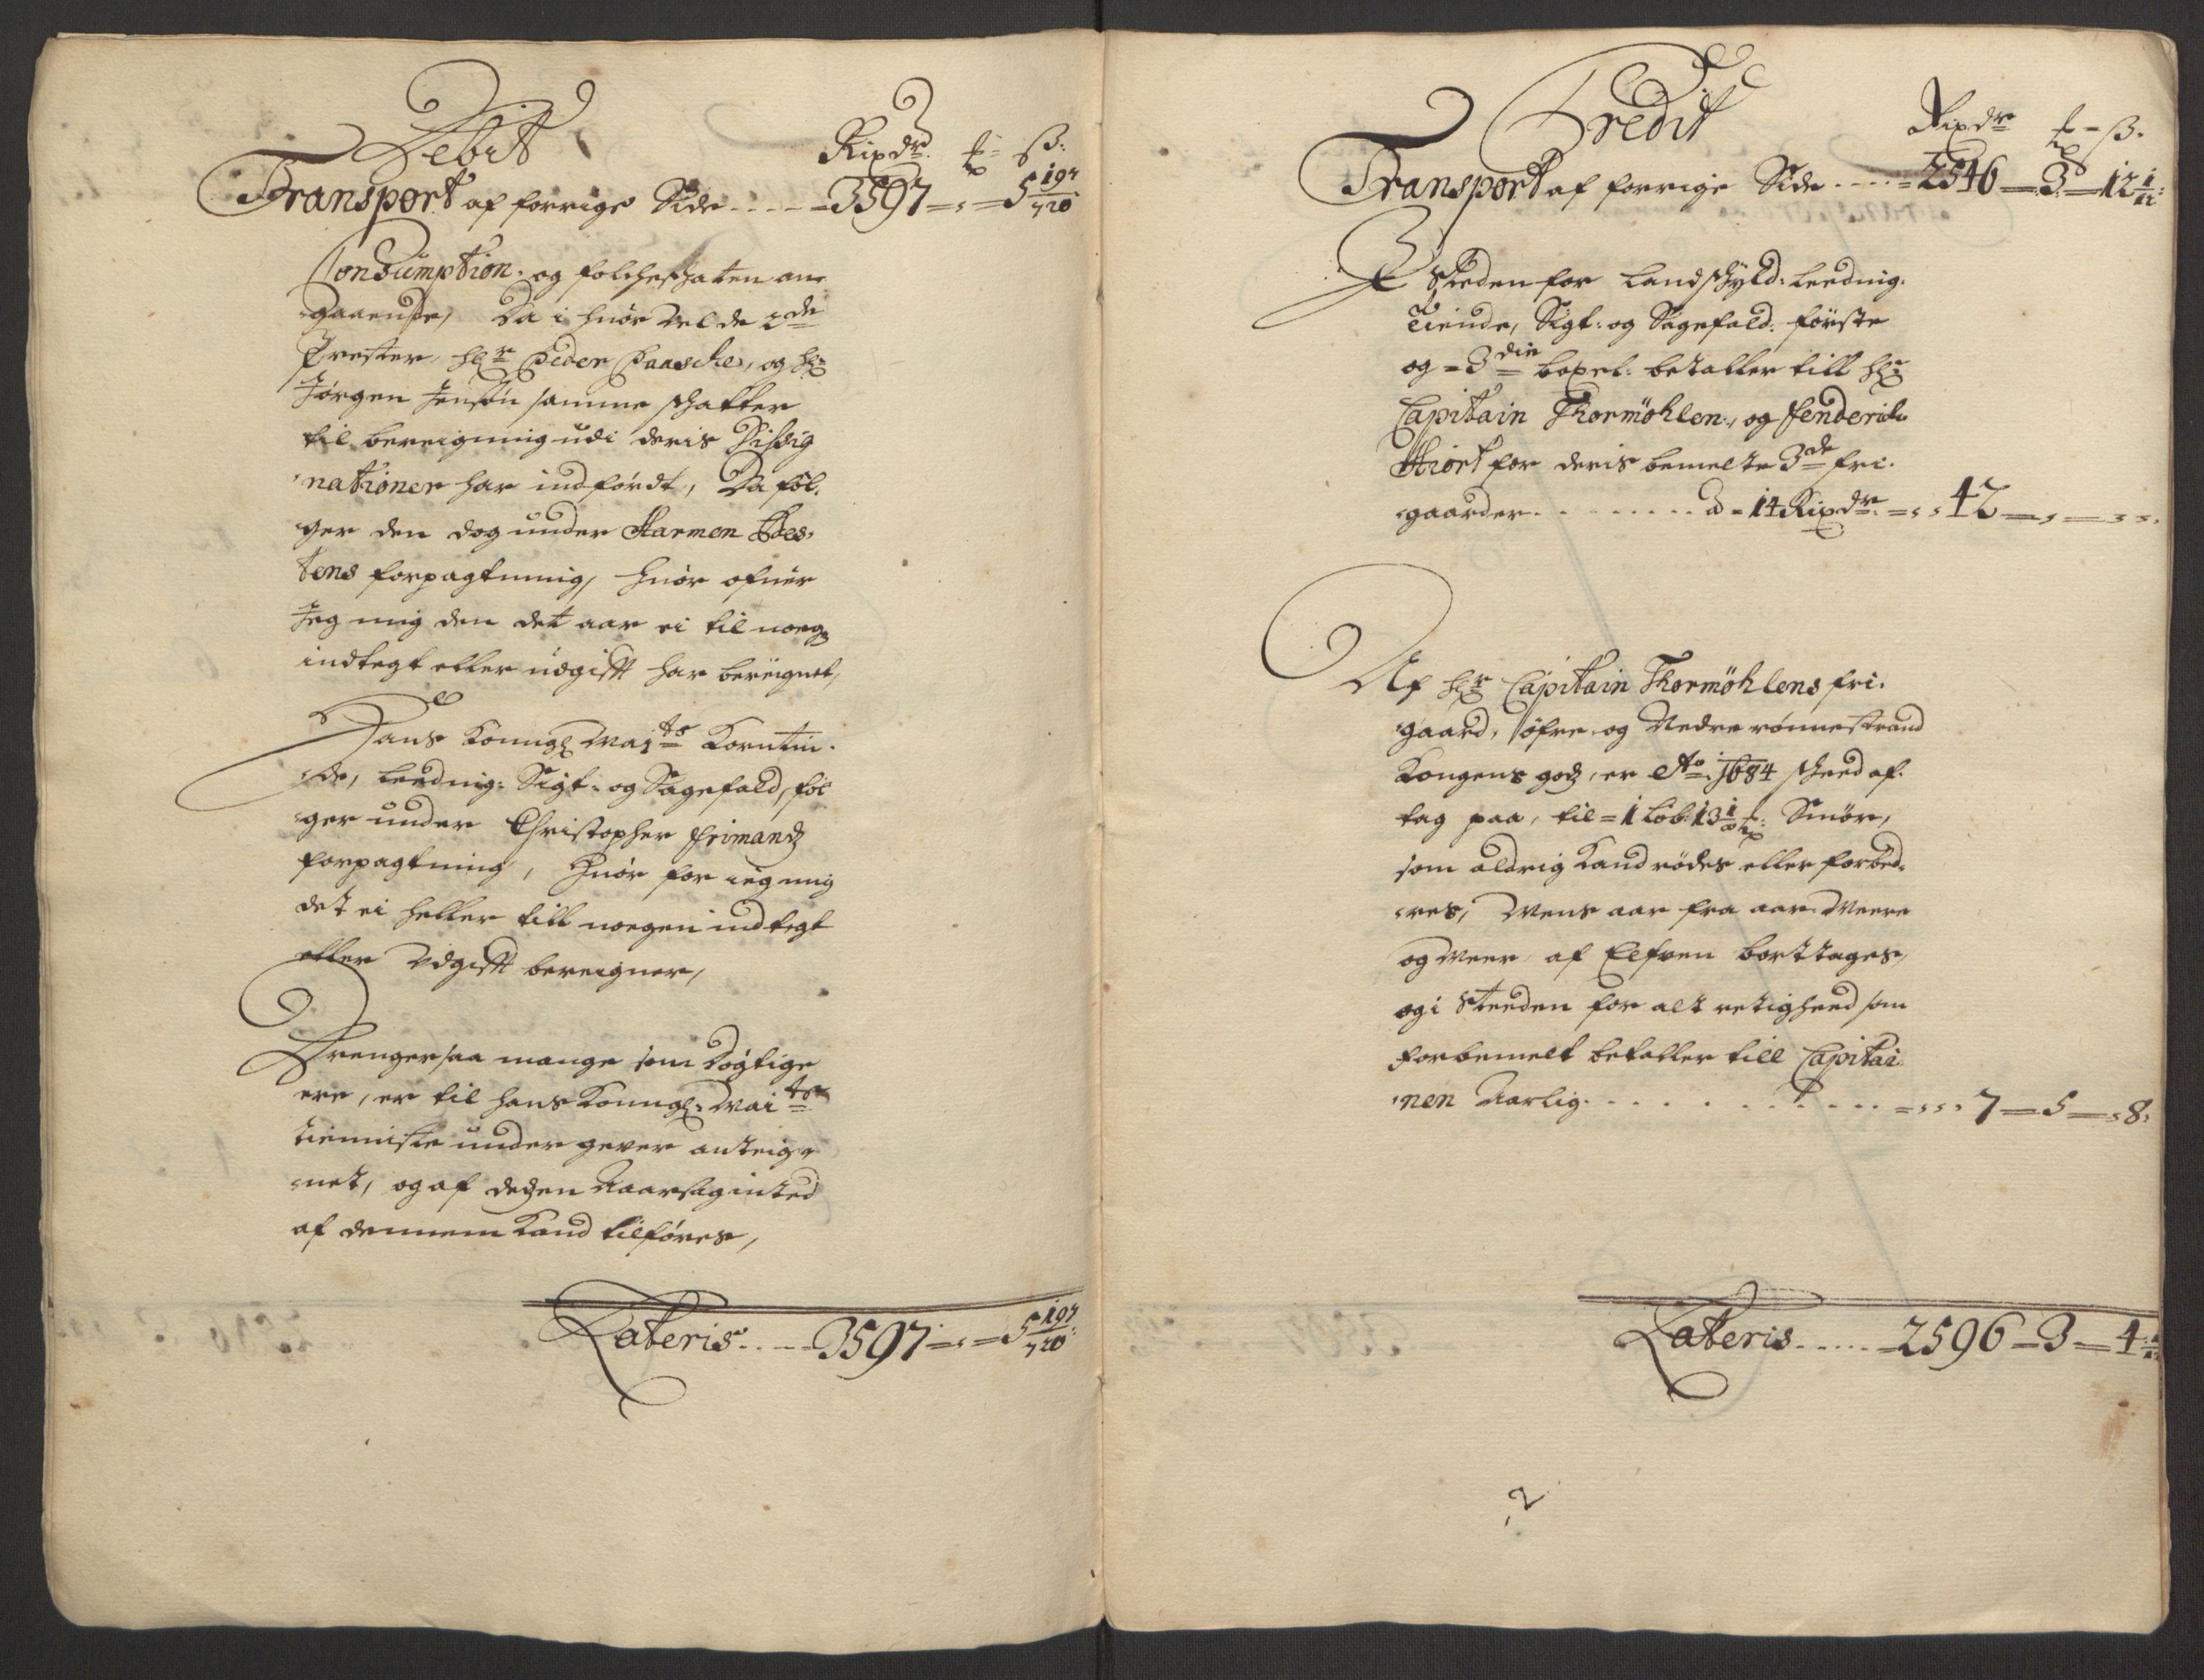 Debit
Rixdr. ß:
Transport af forrige Side ..... 3597 = " = 5 197/720
Consumption. og folcheskatten an-
gaaende, Da i huor vel de 2de
Prester, hr Peder Paasche, og hr
Jørgen Jensøn samme skatter
til bereigning udi deris
nationer har indfördt, Da föl-
ger den dog under Harmen
tens forpagtning, huor ofuer
Jeg mig den det aar ei til noeg
indtegt eller udgifft har bereignet,
Hans Konngl Maits Korntin-
de, Leedning: Sigt- og Sagefald, föl
ger under Christopher Frimandz
forpagtning, Huor for ieg mig
det ei heller till noegen indtegt
eller Udgifft bereigner,
Drenger saa mange som Dögtige
ere, er til hans Konngl: Maits
tienniste under gever anteig-
net, og af deszen Aarsag inted
af dennem Kand tilföres,
Lateris ..... 3597 = " = 5 197/720
Credit
Rixdr ß.
Transport af forrige Side ..... 2546 = 3 = 12 1/12
I Steden for Landskyld: Leedning:
Tiende, Sigt: og Sagefald: förste
og = 3die boxel: betaller till hr
Capitain Thormöhlen, og Fenderich
Hiort for deris bemelte 3de fri-
gaarder ......... a = 14 Rixdr. = " " 42 = " = " "
Af hr Capitain Thormöhlens fri-
gaard, öfre og Nedre rönnestrand
Kongens godz, er Ao: 1684 skeed af-
tag paa, til = 1 Lob: 13 1/2 Smör,
som aldrig Kand rödes eller forbed-
res, Mens aar fra aar Meere
og Meer af Elfven borttages,
og i Steeden for alt retigheed som
forbemelt betaller till Capitai-
nen Aarlig ............ = " " " 7 = 5 = " 8:
Lateris ..... 2596 = 3 = 4
2